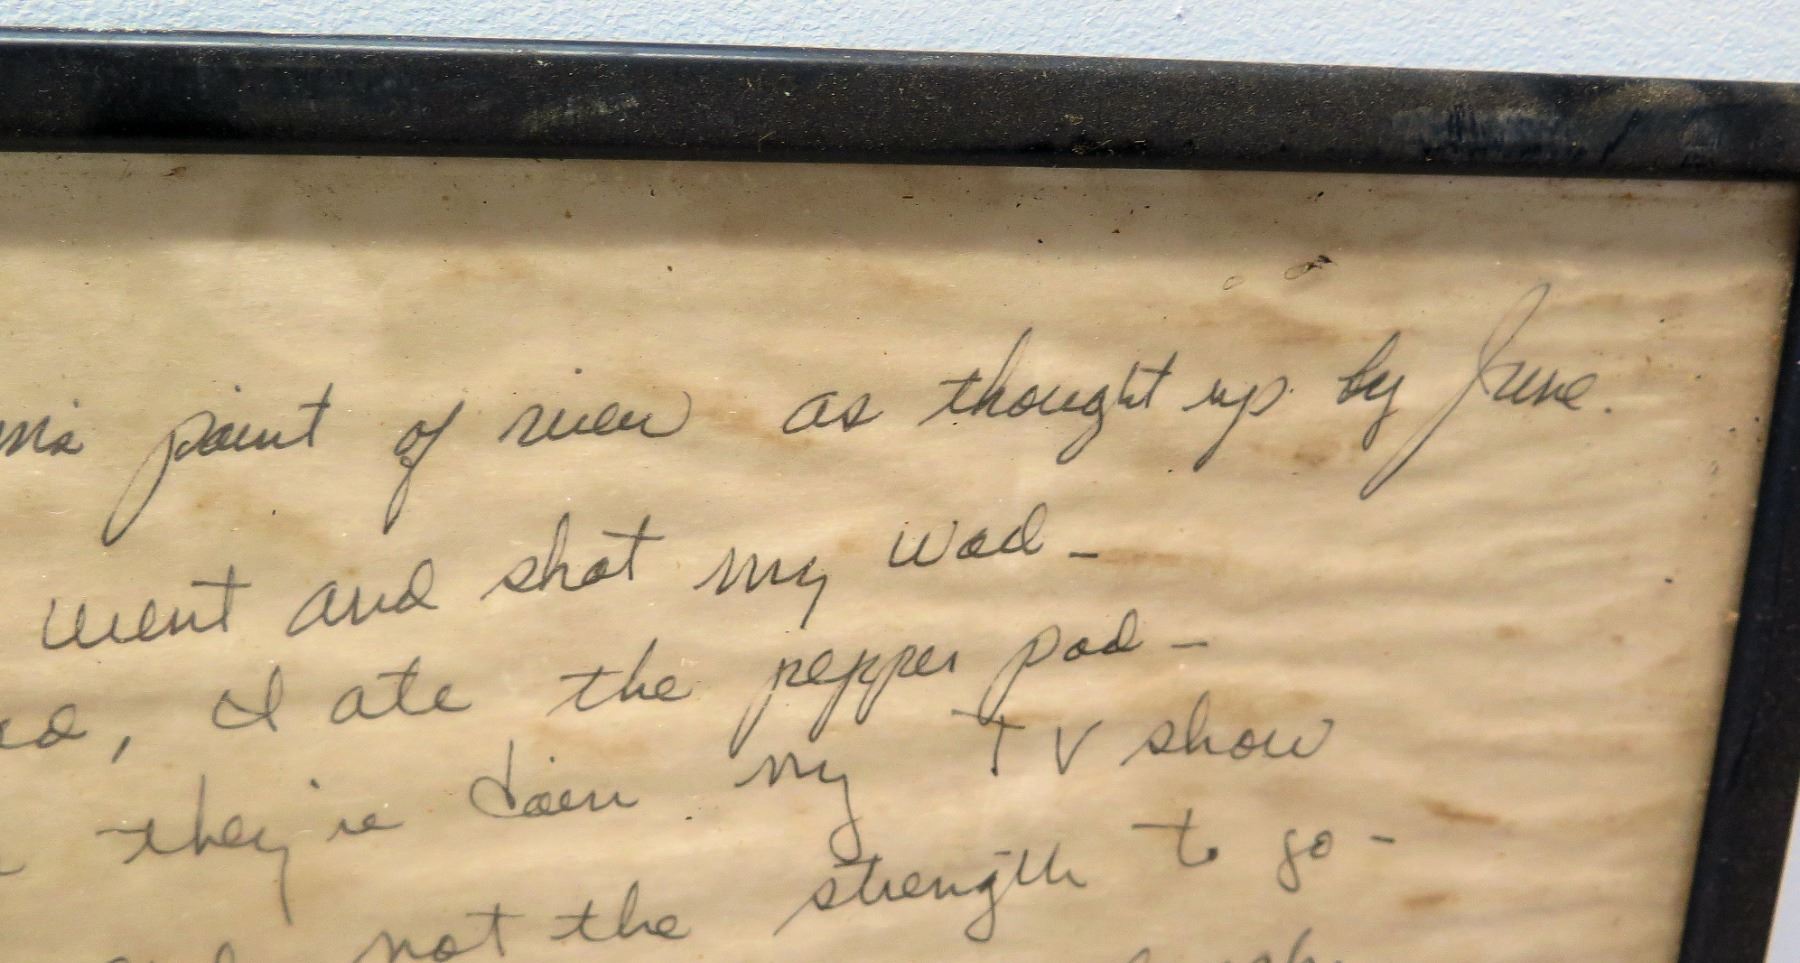 point of view as thought up by June.
went and shot my wad -
, I ate the pepper pod -
they're doin my TV show
not the strength to go -